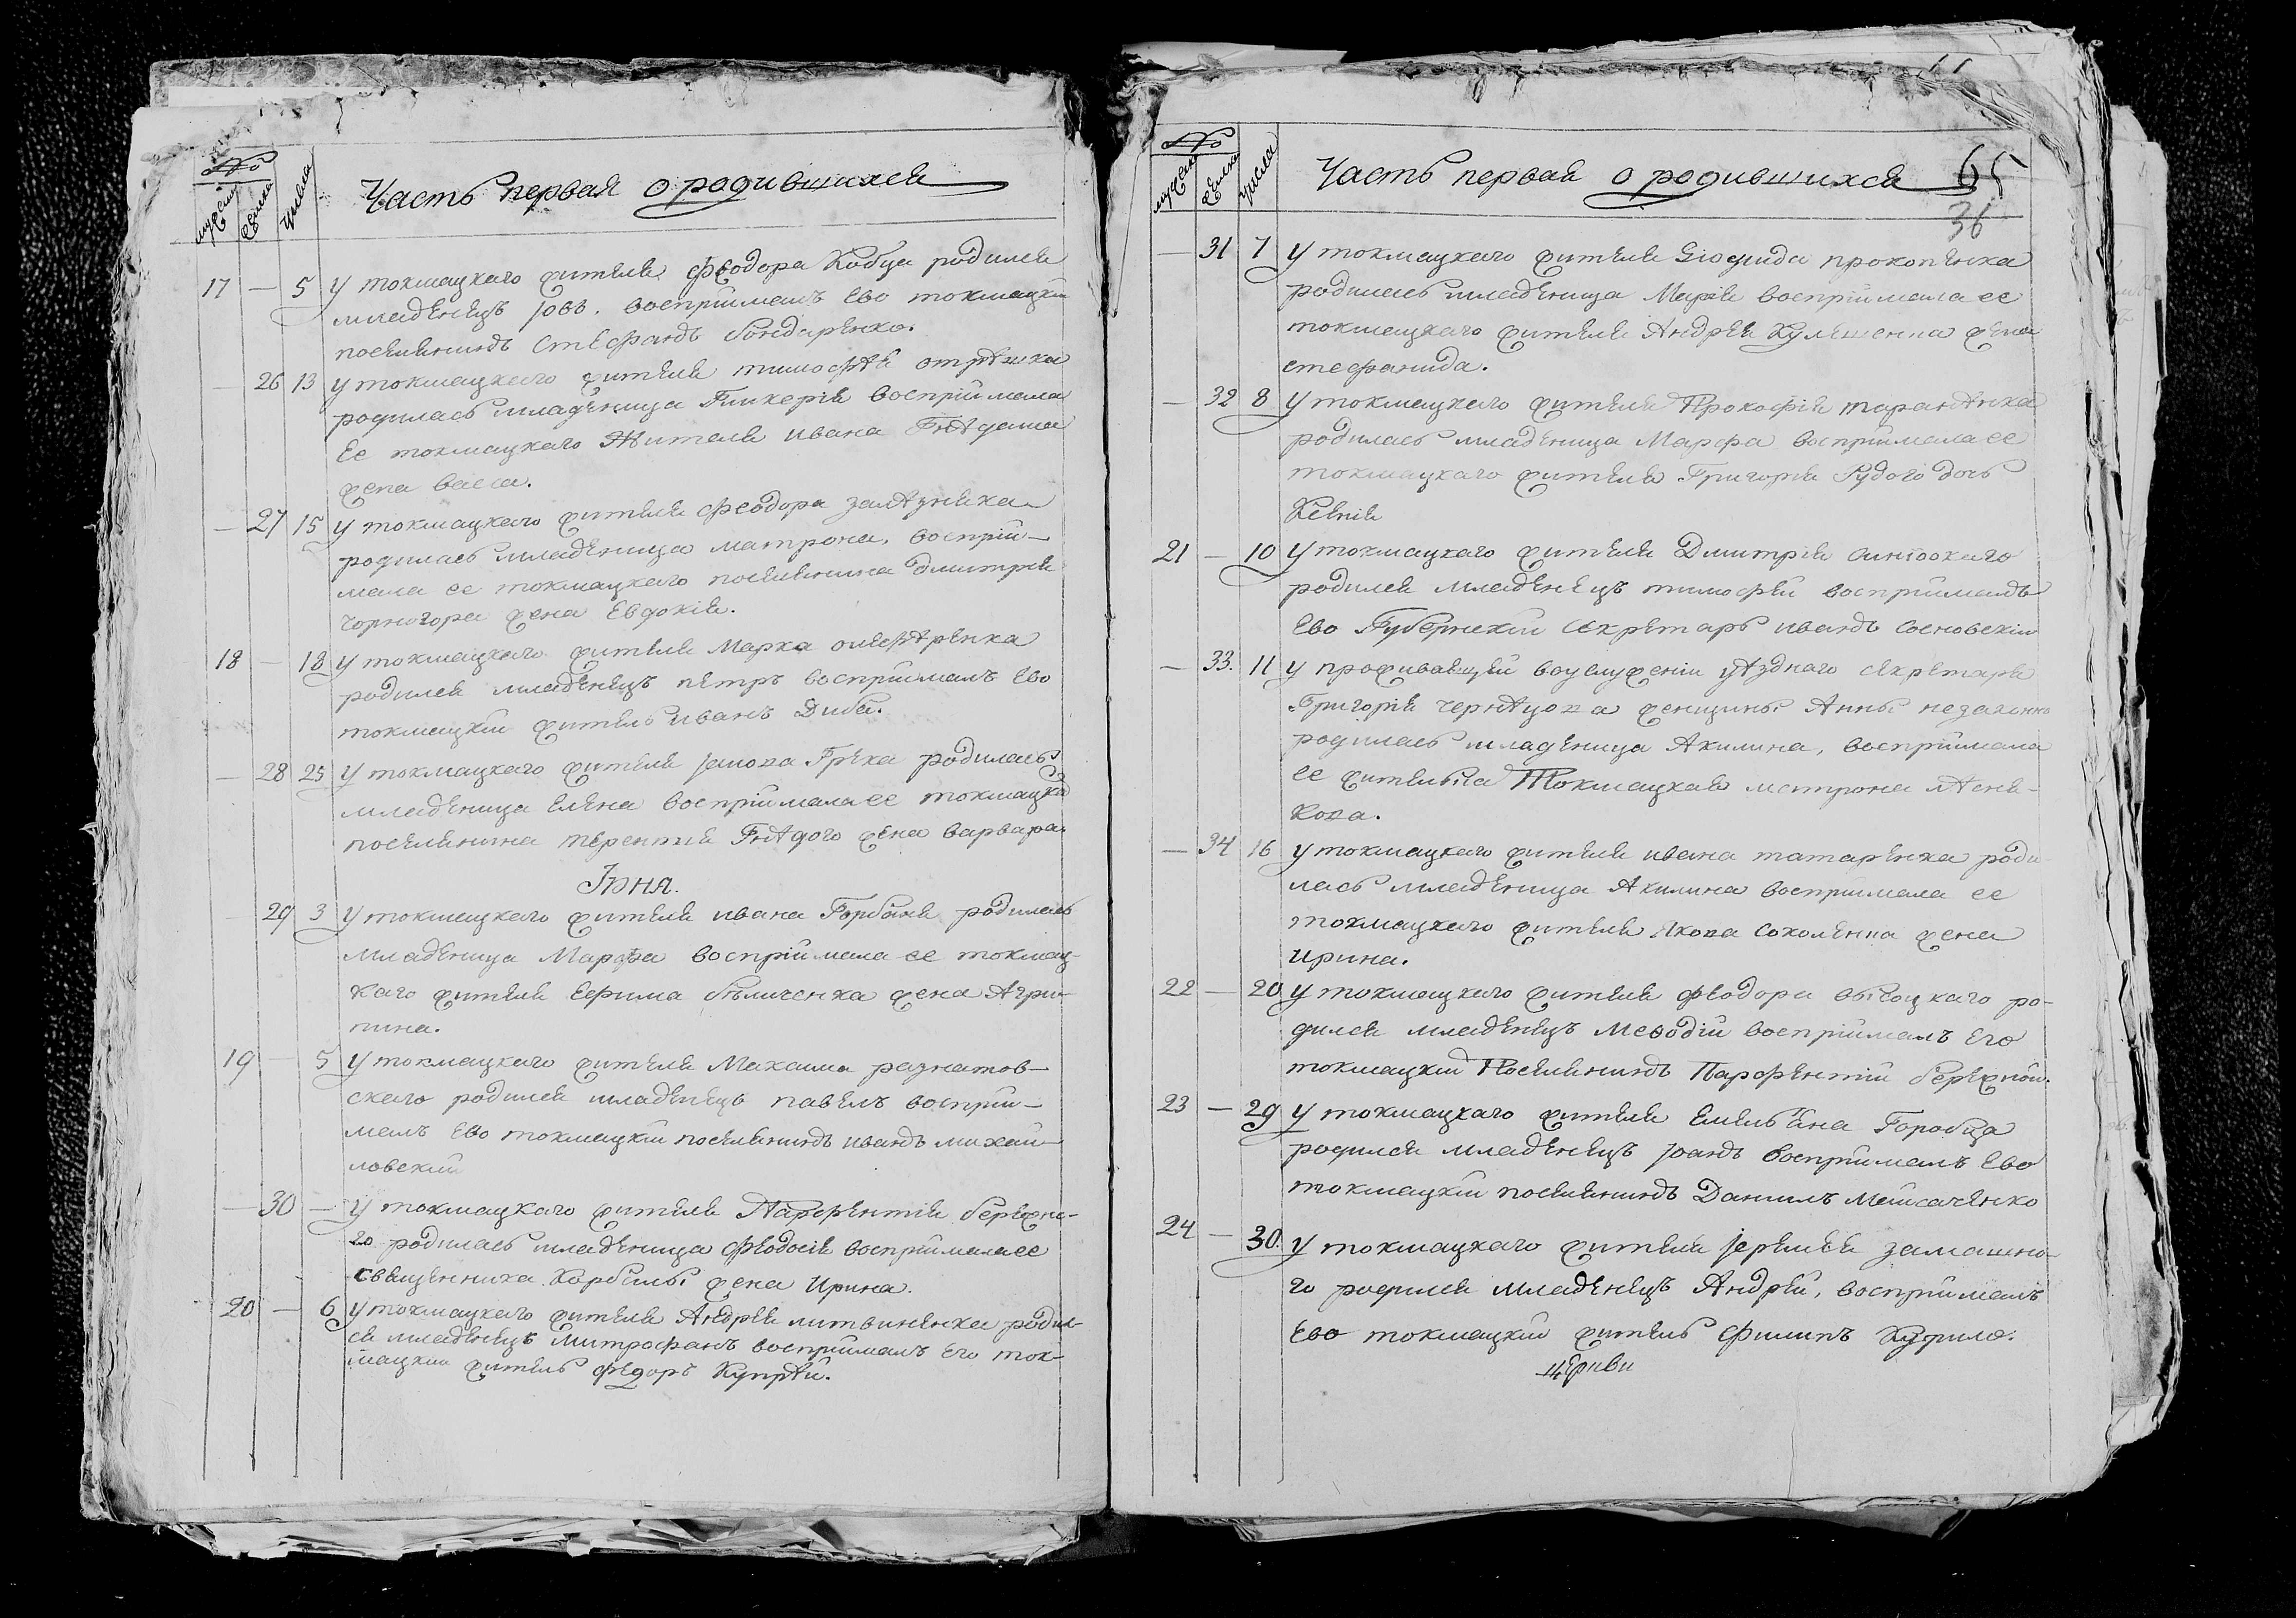 №
мужеска
женска
числа
Часть первая о родившихся
17 — 5 У токмацкаго жителя феодора Кобца родился
младенецъ Іовъ. воспріималъ Ево токмацкій
поселянинъ Стефанъ бондаренко.
— 26 13 у токмацкаго жителя тимофѣя отрѣшка
родилась младеница Гликерія воспріимала
Ее токмацкаго Жителя ивана Гнѣдаша
жена васса.
— 27 15 у токмацкаго жителя феодора залѣзняка
родилась младеница матрона, воспрій-
мала ее токмацкаго поселянина дмитрія
чорногора жена Евдокія.
18 — 18 у токмацкаго жителя Марка олефѣренка
родился младенецъ петръ воспріималъ Ево
токмацкій житель иванъ Диба.
— 28 25 У токмацкаго жителя іакова Грека родилась
младеница Елена воспріимала ее токмацкаго
поселянина терентия Гнѣдого жена варвара.
Іюня.
29 3 У токмацкаго жителя ивана Горбаня родилась
младеница Марфа воспріимала ее токмац-
каго жителя Ефима бѣличенка жена Агри-
пина.
19 — 5 У токмацкаго жителя Максима разнатов-
скаго родился младенецъ павелъ воспрій-
малъ Ево токмацкій поселянинъ иванъ михай-
ловский
— 30 — У токмацкаго жителя Парфентія бережно-
го родилась младеница феодосія воспріимала ее
священника Корбилы жена Ирина.
20 — 6 У токмацкаго жителя Андрея литвиненка родил-
ся младенецъ митрофанъ воспріималъ Его ток-
мацкій житель федоръ Купрѣй.
№
мужеска
женска
числа
Часть первая о родившихся
65
36
— 31 7 У токмацкаго жителя прокопенка
родилась младеница Марія воспріимала ее
токмацкаго жителя Андрея Кулешенка жена
стефанида.
— 32 8 У токмацкаго жителя Прокофія таранѣнка
родилась младеница Марфа воспріимала ее
токмацкаго жителя Григорія Рудого дочь
Ксенія
21 — 10 У токмацкаго жителя Дмитрія
родился младенецъ тимофей воспріималъ
Ево Губернскій секретарь иванъ сосновскій
— 33. 11 у проживающей воуслуженіи уѣзднаго секретаря
Григорія чернѣцова женщины Анны
родилась младеница Акилина, воспріимала
ее жителька Токмацкая матрона лѣсня-
кова.
— 34 16 у токмацкаго жителя ивана татаренка роди-
лась младеница Акилина воспріимала ее
токмацкаго жителя Якова соколенка жена
ирина.
22 — 20 У токмацкаго жителя феодора высоцкаго ро-
дился младенецъ Меѳодій воспріималъ Его
токмацкій Поселянинъ Парфентій бережной.
23 — 29 У токмацкаго жителя Емельяна Горобца
родился младенецъ іоанъ воспріималъ Ево
токмацкій поселянинъ Даниилъ
24 — 30. У токмацкаго жителя іеремея замашно-
го родился младенецъ Андрей, воспріималъ
Ево токмацкій житель филипъ Курило.
церкви